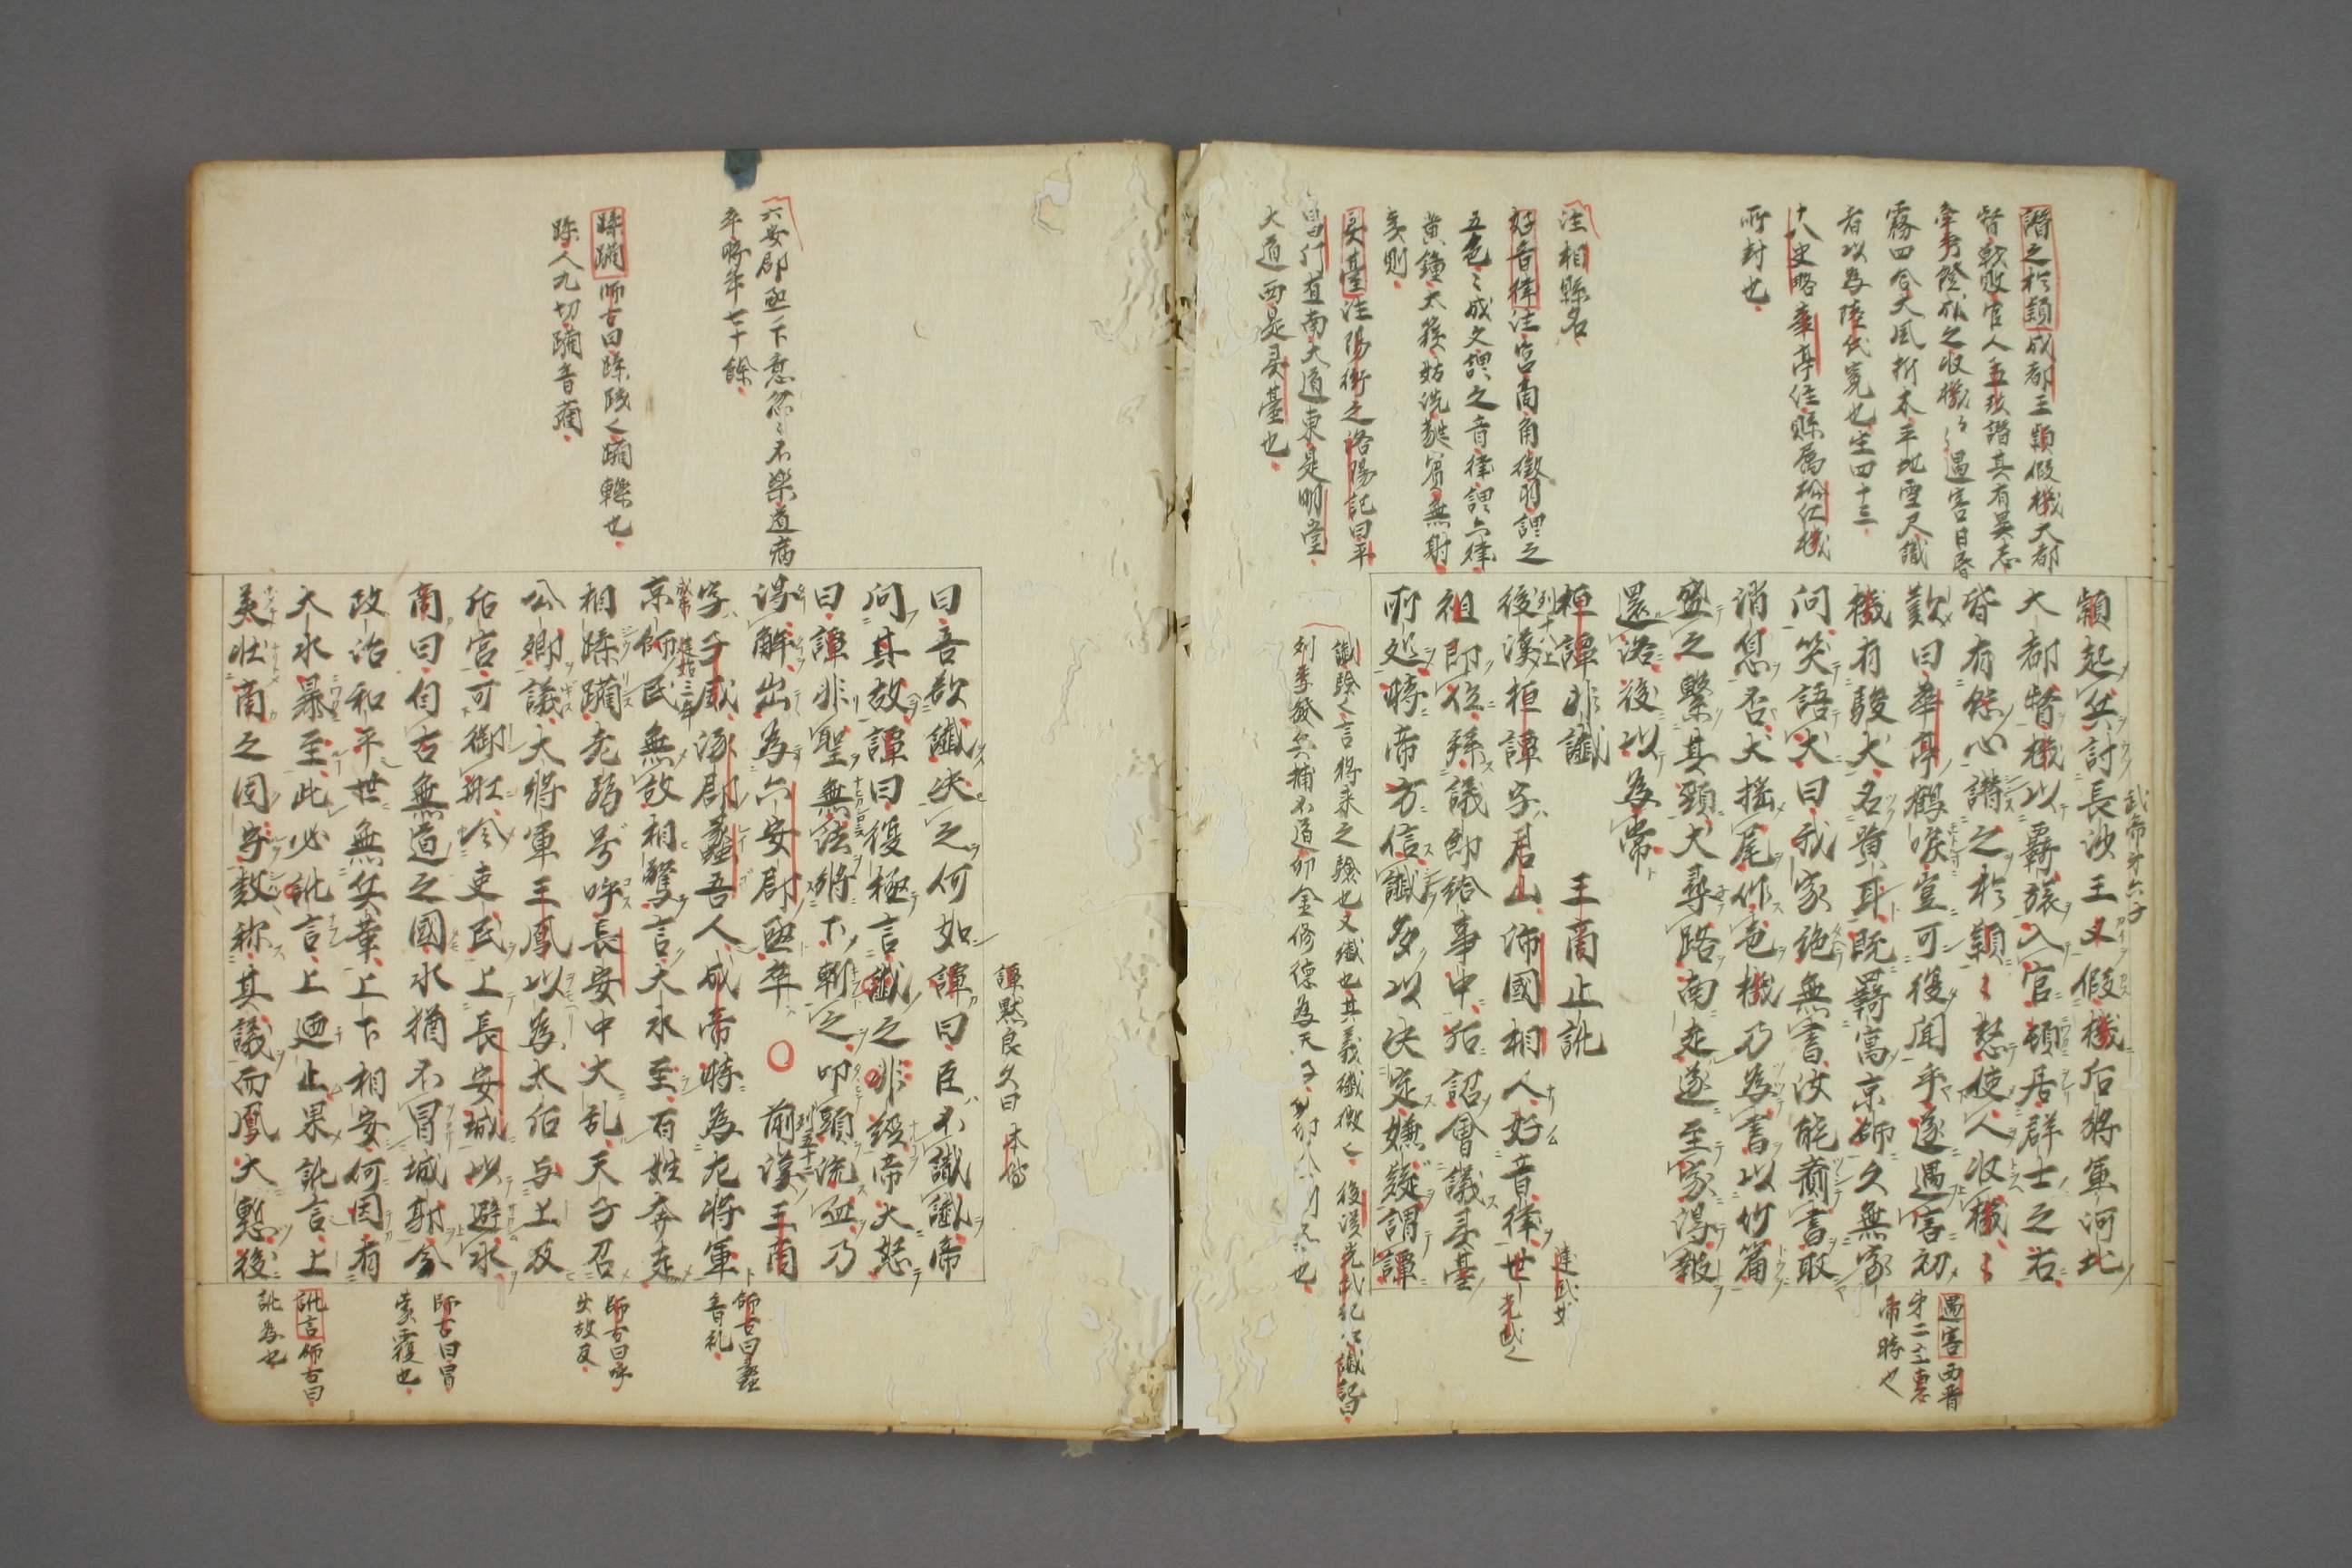 譖之於頴成都王頴假機大都
督戰敗官人孟玖譖其有異志
霧四合大風折木平地雪尺議
者以為陸氏寃也生四十三
十八史略華亭注縣属松江機
所封也
注相縣名
好音律注宮商角徴羽謂之
五色〻成文謂之音律謂六律
黄鐘太簇姑洗蕤賓無射
夷則
灵臺注陽衒之洛陽記曰平
昌門直南大道東是明堂
大道西是灵臺也
武帝才六子
頴起兵討長沙王乂假機后將軍河北
大都督機以覊旅入官頓居群士之右
皆有怨心譖之於頴〻怒使人收機〻
歎曰華亭鶴唳豈可復聞乎遂遇害初
機有駿犬名黄耳既覊寓京師久無家
问笑語犬曰我家絶無書汝能齎書取
消息否犬揺尾作声機乃為書以竹筩
盛之繋其頸犬尋路南走遂至家得報
還洛後以為常
桓譚非讖　王商止訛
列十八上
後漢桓譚字君山沛國相人好音律世
祖即位拜議郎給事中后詔會議灵臺
所処時帝方信讖多以决定嫌疑謂譚
遇害西晋
才二主惠
帝時也
建武廿
光武〻
讖驗〻言將来之驗也又纖也其義纖微〻後漢光武紀以讖記曰
刘季發兵捕不道卯金修德為天子
譚黙良久曰本傳
曰吾欲讖决之何如譚曰臣不讀讖帝
问其故譚曰復極言讖之非經帝大怒
曰譚非聖無法將下斬之叩頭流血乃
得解出為六安郡丞卒〇前漢王商
列五十二
字子威涿郡蠡吾人成帝時為左將軍
成帝建始三年
京師民無故相驚言大水至百姓奔走
相蹂躪老弱号呼長安中大乱天子召
公卿議大將軍王鳳以為太后与上及
后宮可御舩令吏民上長安城以避水
商曰自古無道之國水猶不冒城郭今
政治和平世無兵革上下相安何因有
大水暴至此必訛言上迺止果訛言上
美壮商之固守数称其議而鳳大慙後
六安郡丞下意忽〻不樂道病
卒時年七十餘
蹂躪師古曰蹂践〻躪轢也
蹂人九切躪音藺
師古曰蠡
音礼
師古曰呼
火故反
師古曰冒
蒙覆也
訛言師古曰
訛為也